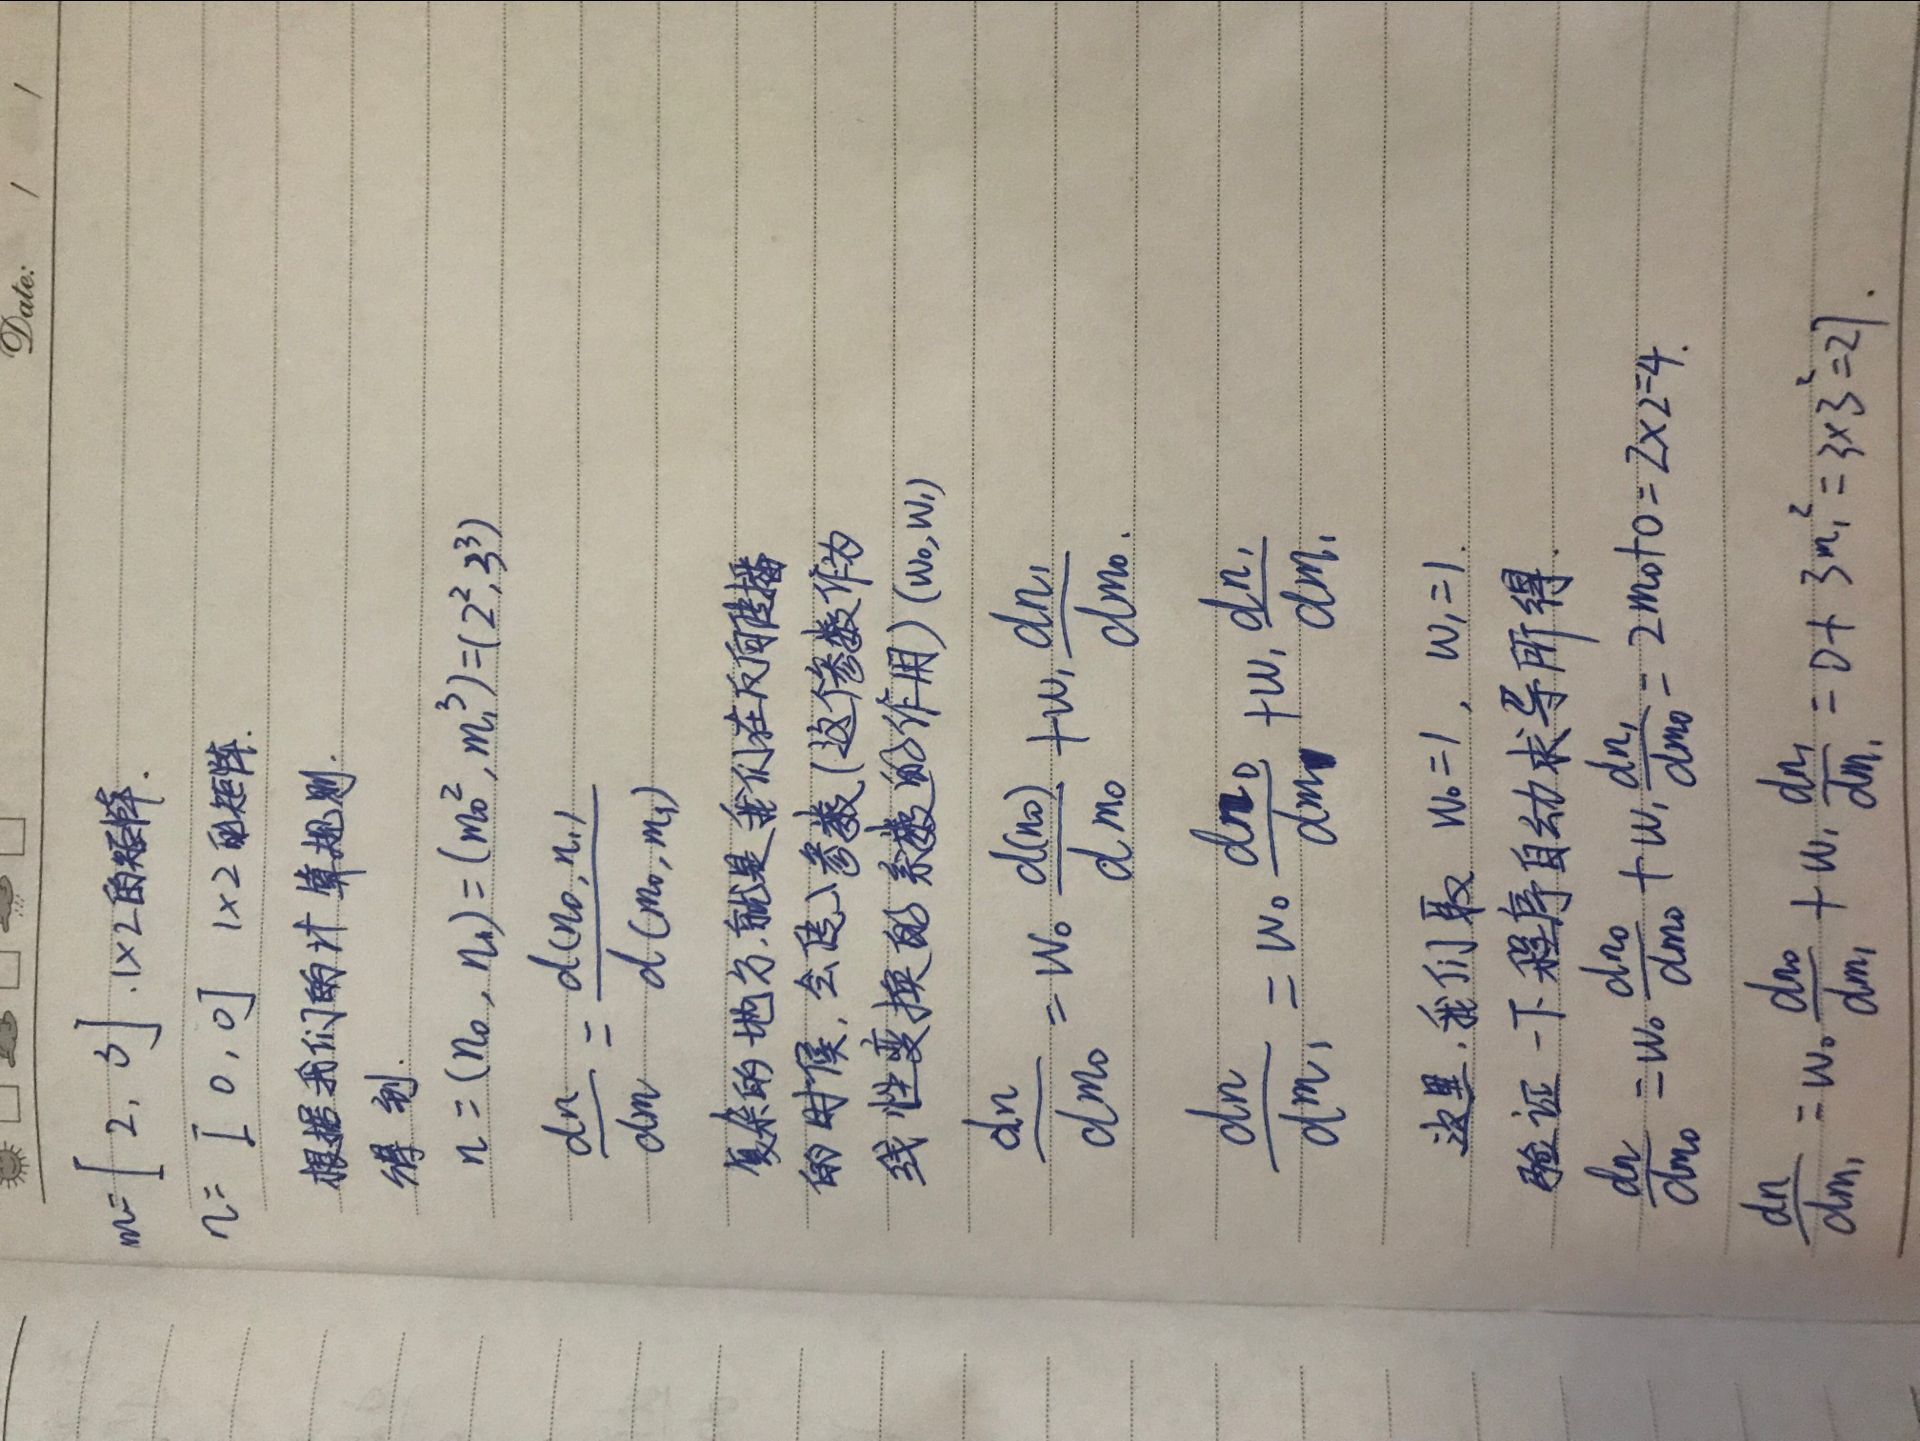 Date: / /
m = [ 2, 3 ] . 1×2的矩阵.
n = [ 0, 0 ] 1×2的矩阵.
根据我们的计算规则.
得到.
n = (n₀, n₁) = (m₀², m₁³) = (2², 3³)
dn/dm = d(n₀, n₁)/d(m₀, m₁)
复杂的地方.就是我们在反向传播
的时候,会传入参数(这个参数作为
线性变换的系数的作用) (w₀, w₁)
dn/dm₀ = w₀ d(n₀)/dm₀ + w₁ dn₁/dm₀.
dn/dm₁ = w₀ dn₀/dm₁ + w₁ dn₁/dm₁
这里.我们取 w₀=1, w₁=1.
验证一下程序自动求导所得.
dn/dm₀ = w₀ dn₀/dm₀ + w₁ dn₁/dm₀ = 2m₀+0 = 2×2=4.
dn/dm₁ = w₀ dn₀/dm₁ + w₁ dn₁/dm₁ = 0+3m₁² = 3×3²=27.